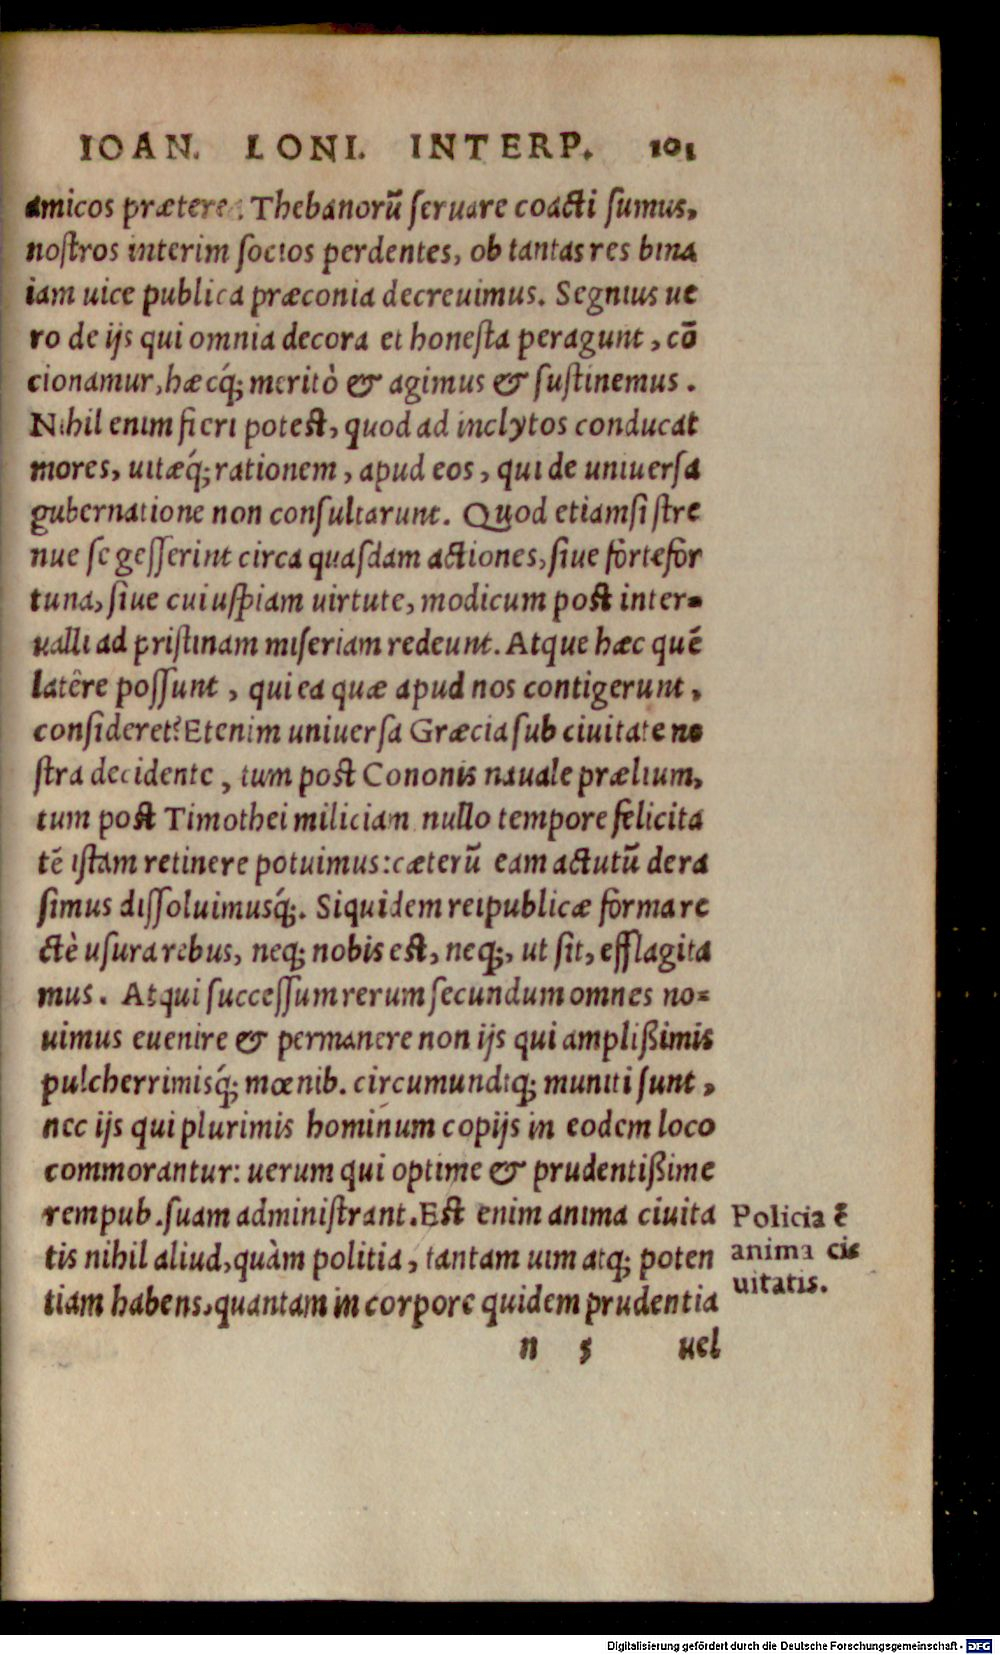 IOAN. LONI. INTERP. 101
amicos præterea Thebanorũ ſeruare coacti ſumus,
noſtros interim ſocios perdentes, ob tantas res bina
iam uice publica præconia decreuimus. Segnius ue
ro de ijs qui omnia decora et honeſta peragunt, cõ
cionamur, hæcq́; meritò & agimus & ſuſtinemus.
Nihil enim fieri poteſt, quod ad inclytos conducat
mores, uitæq́; rationem, apud eos, qui de uniuerſa
gubernatione non conſultarunt. Quod etiamſi ſtre
nue ſe geſſerint circa quaſdam actiones, ſiue fortefor
tuna, ſiue cuiuſpiam uirtute, modicum poſt inter-
ualli ad priſtinam miſeriam redeunt. Atque hæc quẽ
latêre poſſunt, qui ea quæ apud nos contigerunt,
conſideret? Etenim uniuerſa Græcia ſub ciuitate no
ſtra decidente, tum poſt Cononis nauale prælium,
tum poſt Timothei miliciam nullo tempore felicita
tẽ iſtam retinere potuimus: cæterũ eam actutũ dera
ſimus diſſoluimusq́;. Siquidem reipublicæ forma re
ctè uſura rebus, neq; nobis eſt, neq;, ut ſit, efflagita
mus. Atqui ſucceſſum rerum ſecundum omnes no-
uimus euenire & permanere non ijs qui ampliſsimis
pulcherrimisq́; mœnib. circumundiq; muniti ſunt,
nec ijs qui plurimis hominum copijs in eodem loco
commorantur: uerum qui optime & prudentiſsime
rempub. ſuam adminiſtrant. Eſt enim anima ciuita
tis nihil aliud, quàm politia, tantam uim atq; poten
tiam habens, quantam in corpore quidem prudentia
Policia ẽ
anima ci-
uitatis.
n 5 uel
Digitalisierung gefördert durch die Deutsche Forschungsgemeinschaft - DFG